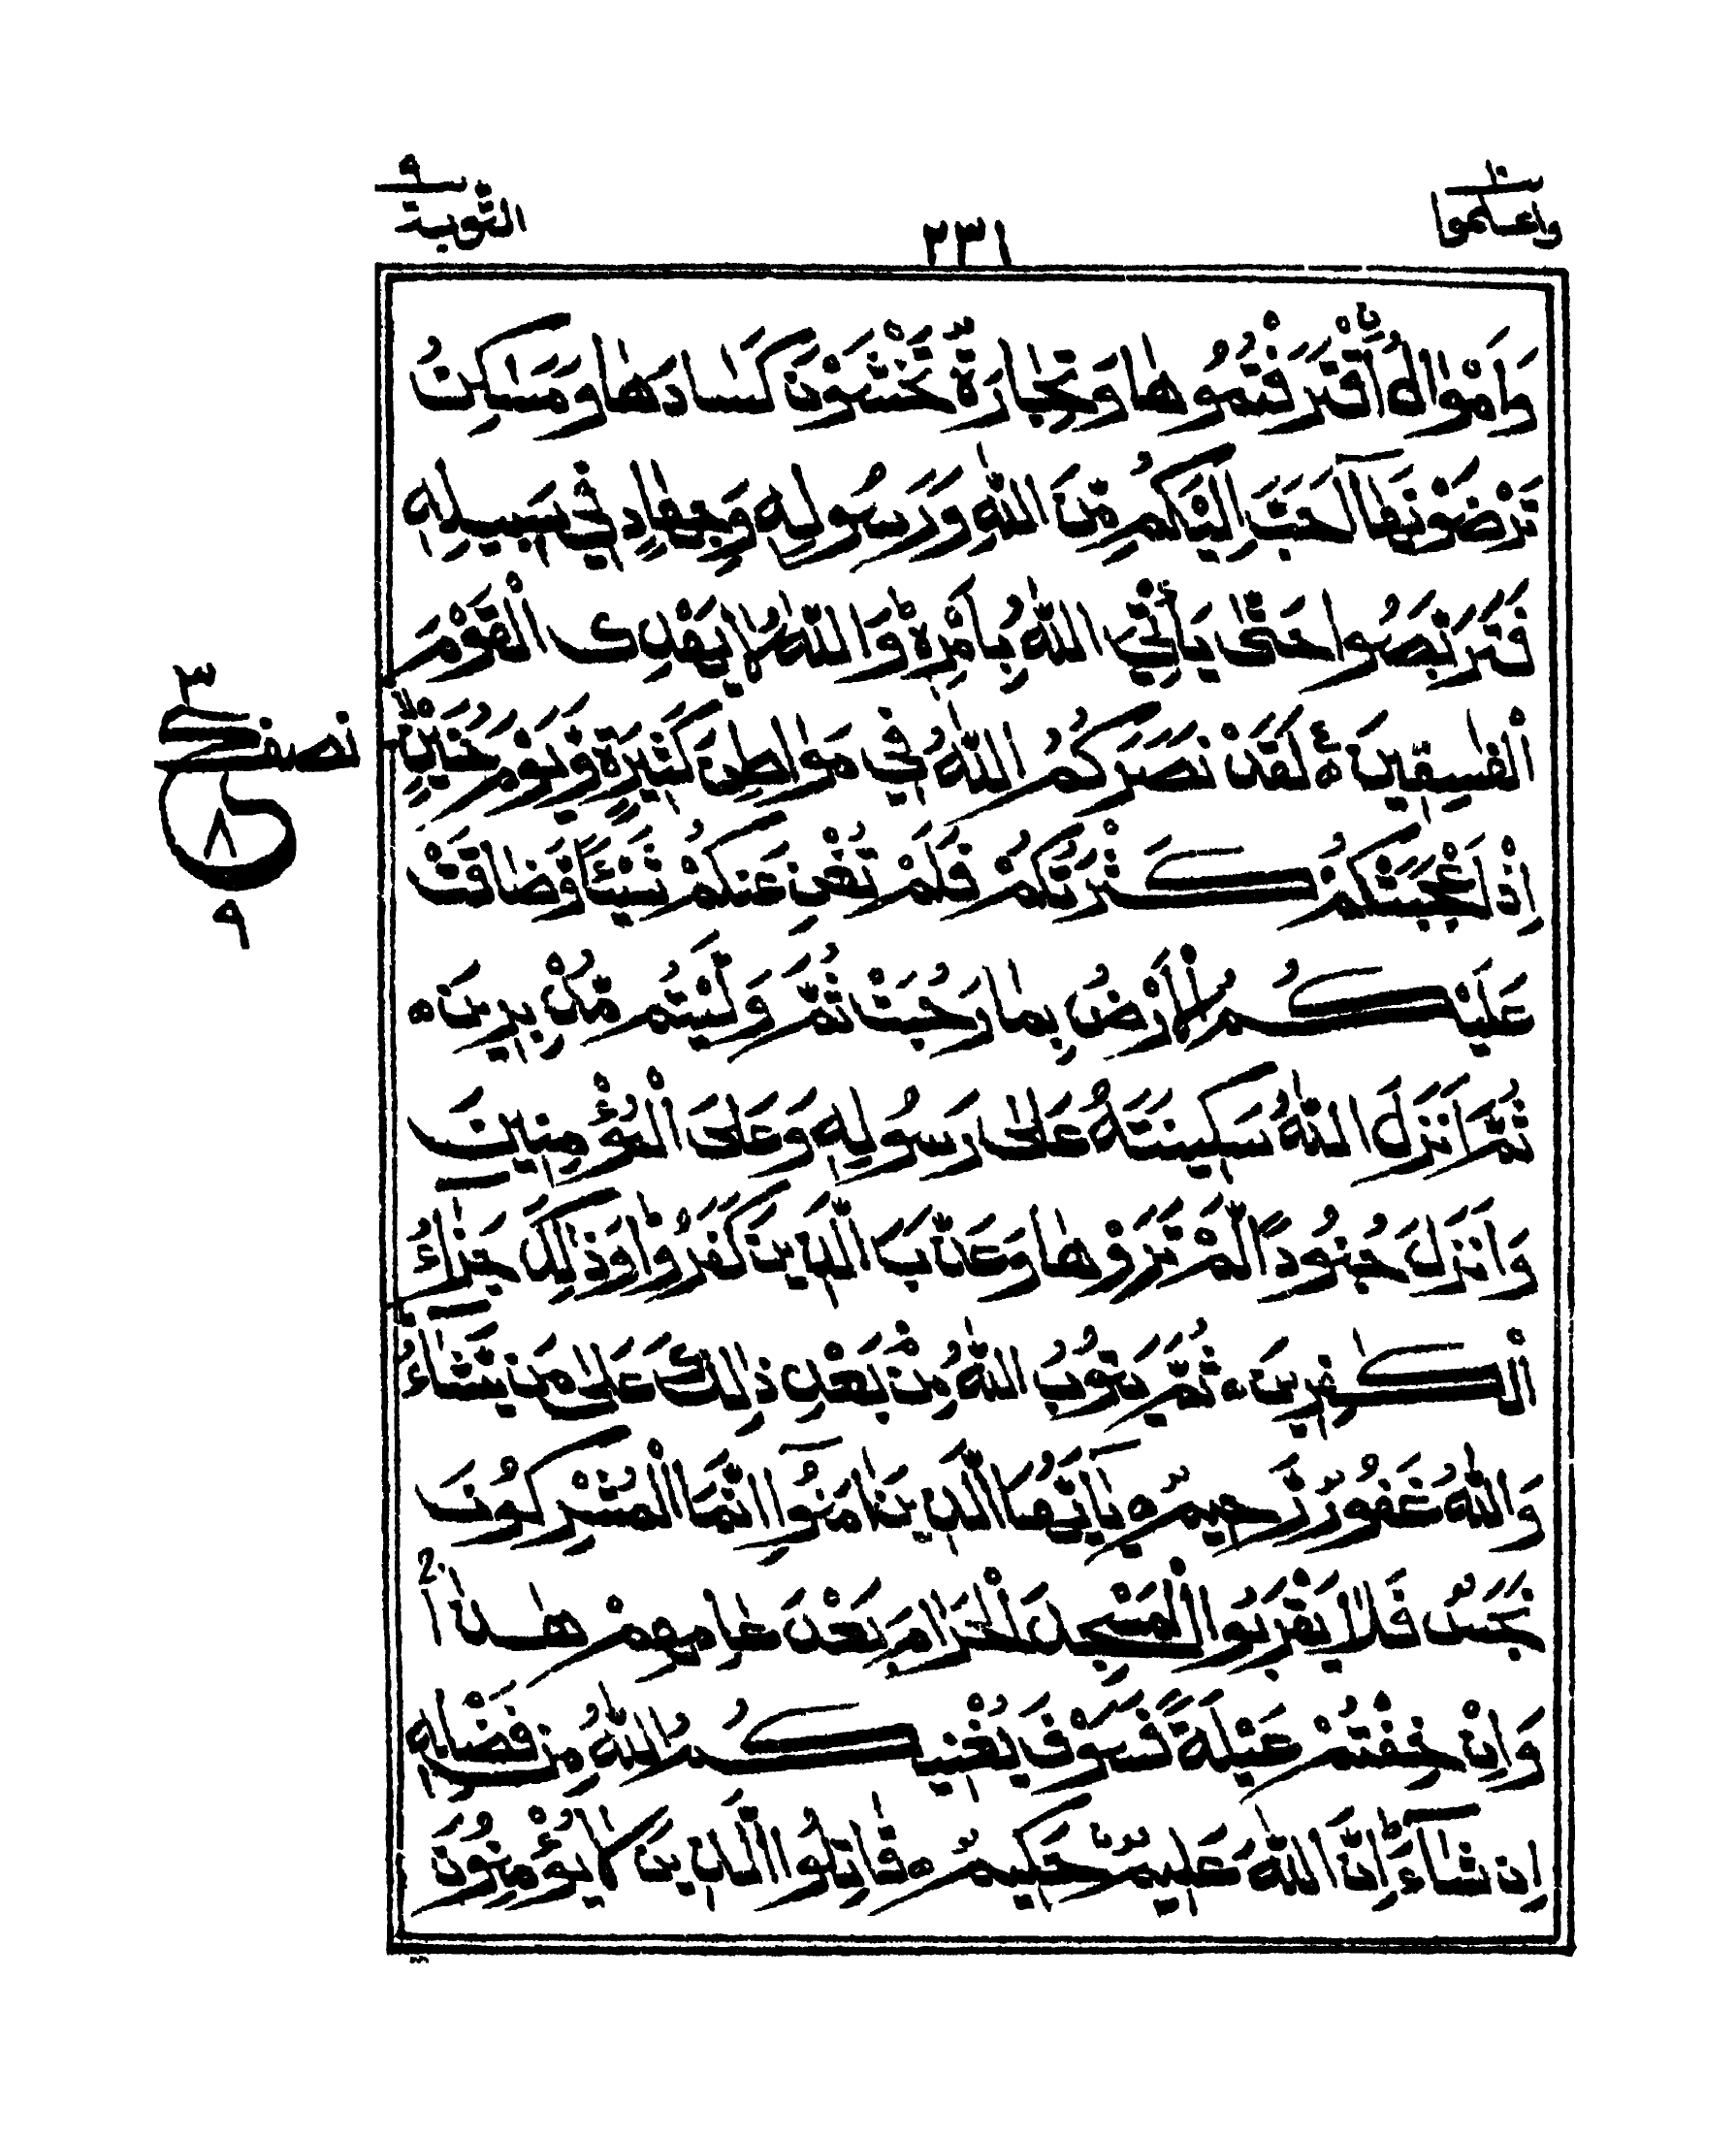 واعلموا ١٠
٢٣١
التوبة ٩
وَاَمْوَالُ ۨاقْتَرَفْتُمُوْهَا وَتِجَارَةٌ تَخْشَوْنَ كَسَادَهَا وَمَسٰكِنُ
تَرْضَوْنَهَآ اَحَبَّ اِلَيْكُمْ مِّنَ اللّٰهِ وَرَسُوْلِهٖ وَجِهَادٍ فِيْ سَبِيْلِهٖ
فَتَرَبَّصُوْا حَتّٰى يَأْتِيَ اللّٰهُ بِاَمْرِهٖ ؕ وَاللّٰهُ لَا يَهْدِى الْقَوْمَ
الْفٰسِقِيْنَ ۵ع لَقَدْ نَصَرَكُمُ اللّٰهُ فِيْ مَوَاطِنَ كَثِيْرَةٍ وَّيَوْمَ حُنَيْنٍ ۙ
اِذْ اَعْجَبَتْكُمْ كَثْرَتُكُمْ فَلَمْ تُغْنِ عَنْكُمْ شَيْـًٔا وَّضَاقَتْ
عَلَيْكُمُ الْاَرْضُ بِمَا رَحُبَتْ ثُمَّ وَلَّيْتُمْ مُّدْبِرِيْنَ ۵
ثُمَّ اَنْزَلَ اللّٰهُ سَكِيْنَتَهٗ عَلٰى رَسُوْلِهٖ وَعَلَى الْمُؤْمِنِيْنَ
وَاَنْزَلَ جُنُوْدًا لَّمْ تَرَوْهَا وَعَذَّبَ الَّذِيْنَ كَفَرُوْا ؕ وَذٰلِكَ جَزَآءُ
الْكٰفِرِيْنَ ۵ ثُمَّ يَتُوْبُ اللّٰهُ مِنْۢ بَعْدِ ذٰلِكَ عَلٰى مَنْ يَّشَآءُ ؕ
وَاللّٰهُ غَفُوْرٌ رَّحِيْمٌ ۵ يٰٓاَيُّهَا الَّذِيْنَ اٰمَنُوْٓا اِنَّمَا الْمُشْرِكُوْنَ
نَجَسٌ فَلَا يَقْرَبُوا الْمَسْجِدَ الْحَرَامَ بَعْدَ عَامِهِمْ هٰذَا ۚ
وَاِنْ خِفْتُمْ عَيْلَةً فَسَوْفَ يُغْنِيْكُمُ اللّٰهُ مِنْ فَضْلِهٖٓ
اِنْ شَآءَ ؕ اِنَّ اللّٰهَ عَلِيْمٌ حَكِيْمٌ ۵ قَاتِلُوا الَّذِيْنَ لَا يُؤْمِنُوْنَ
٣
نصف
ع
٨
٩